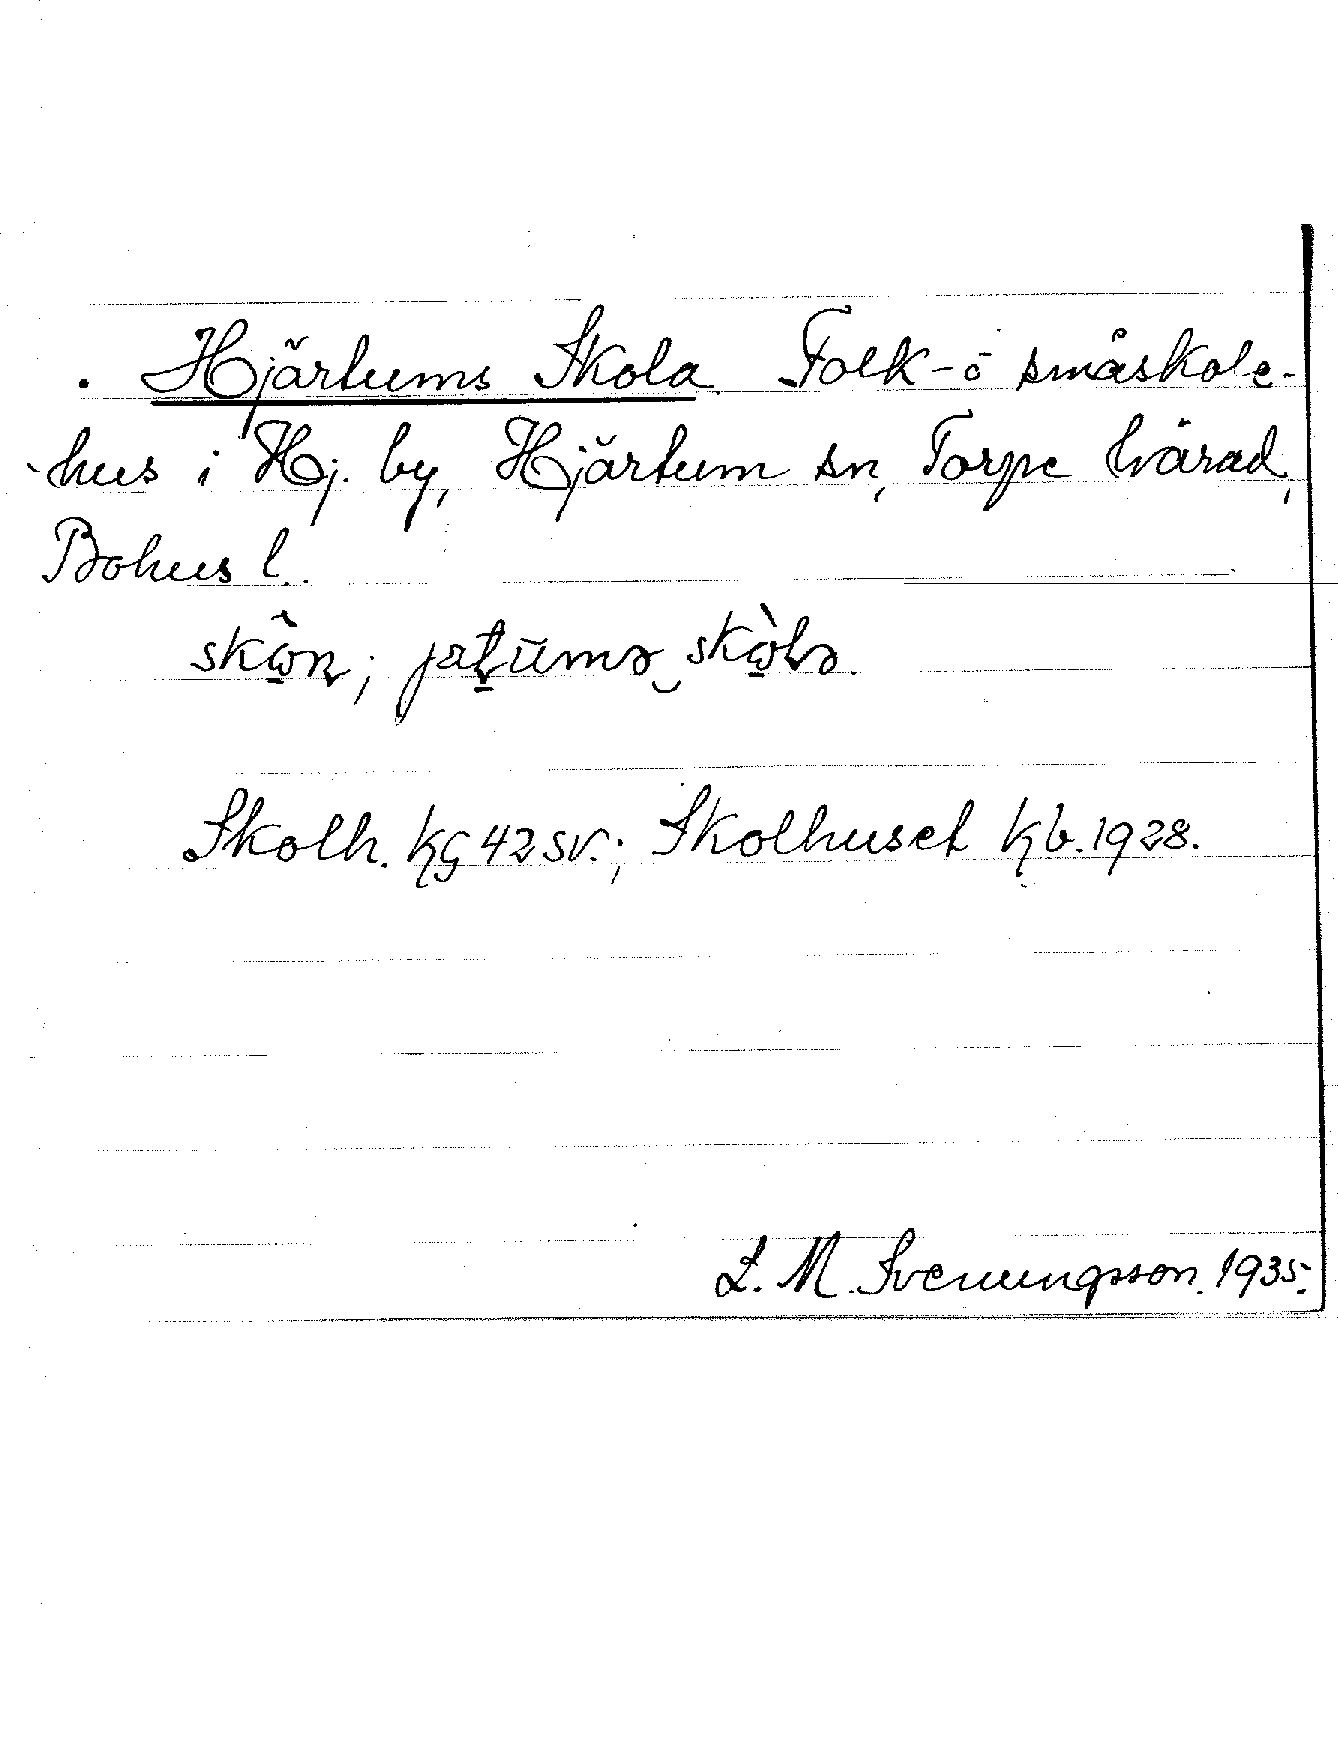 . Hjärtums Skola. Folk- o småskole-
hus i Hj. by, Hjärtum sn, Torpe härad,
Bohus l.
skɷ̂n; jat̲ŭmə‿skɷ̀lə.
Skolh. kg 42 SV.; Skolhuset kb. 1928.
L. M. Svenungsson. 1935.